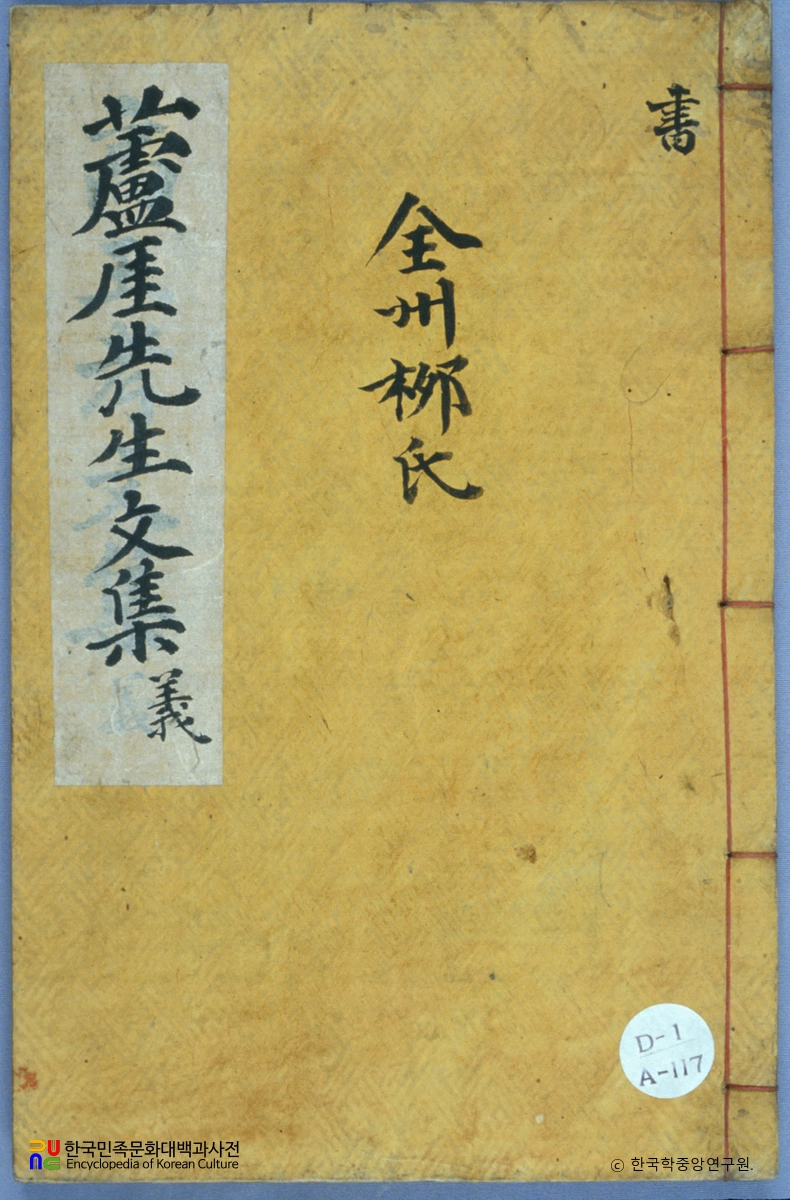 書
全州柳氏
蘆厓先生文集 義
D-1
A-117
한국민족문화대백과사전
Encyclopedia of Korean Culture
© 한국학중앙연구원.